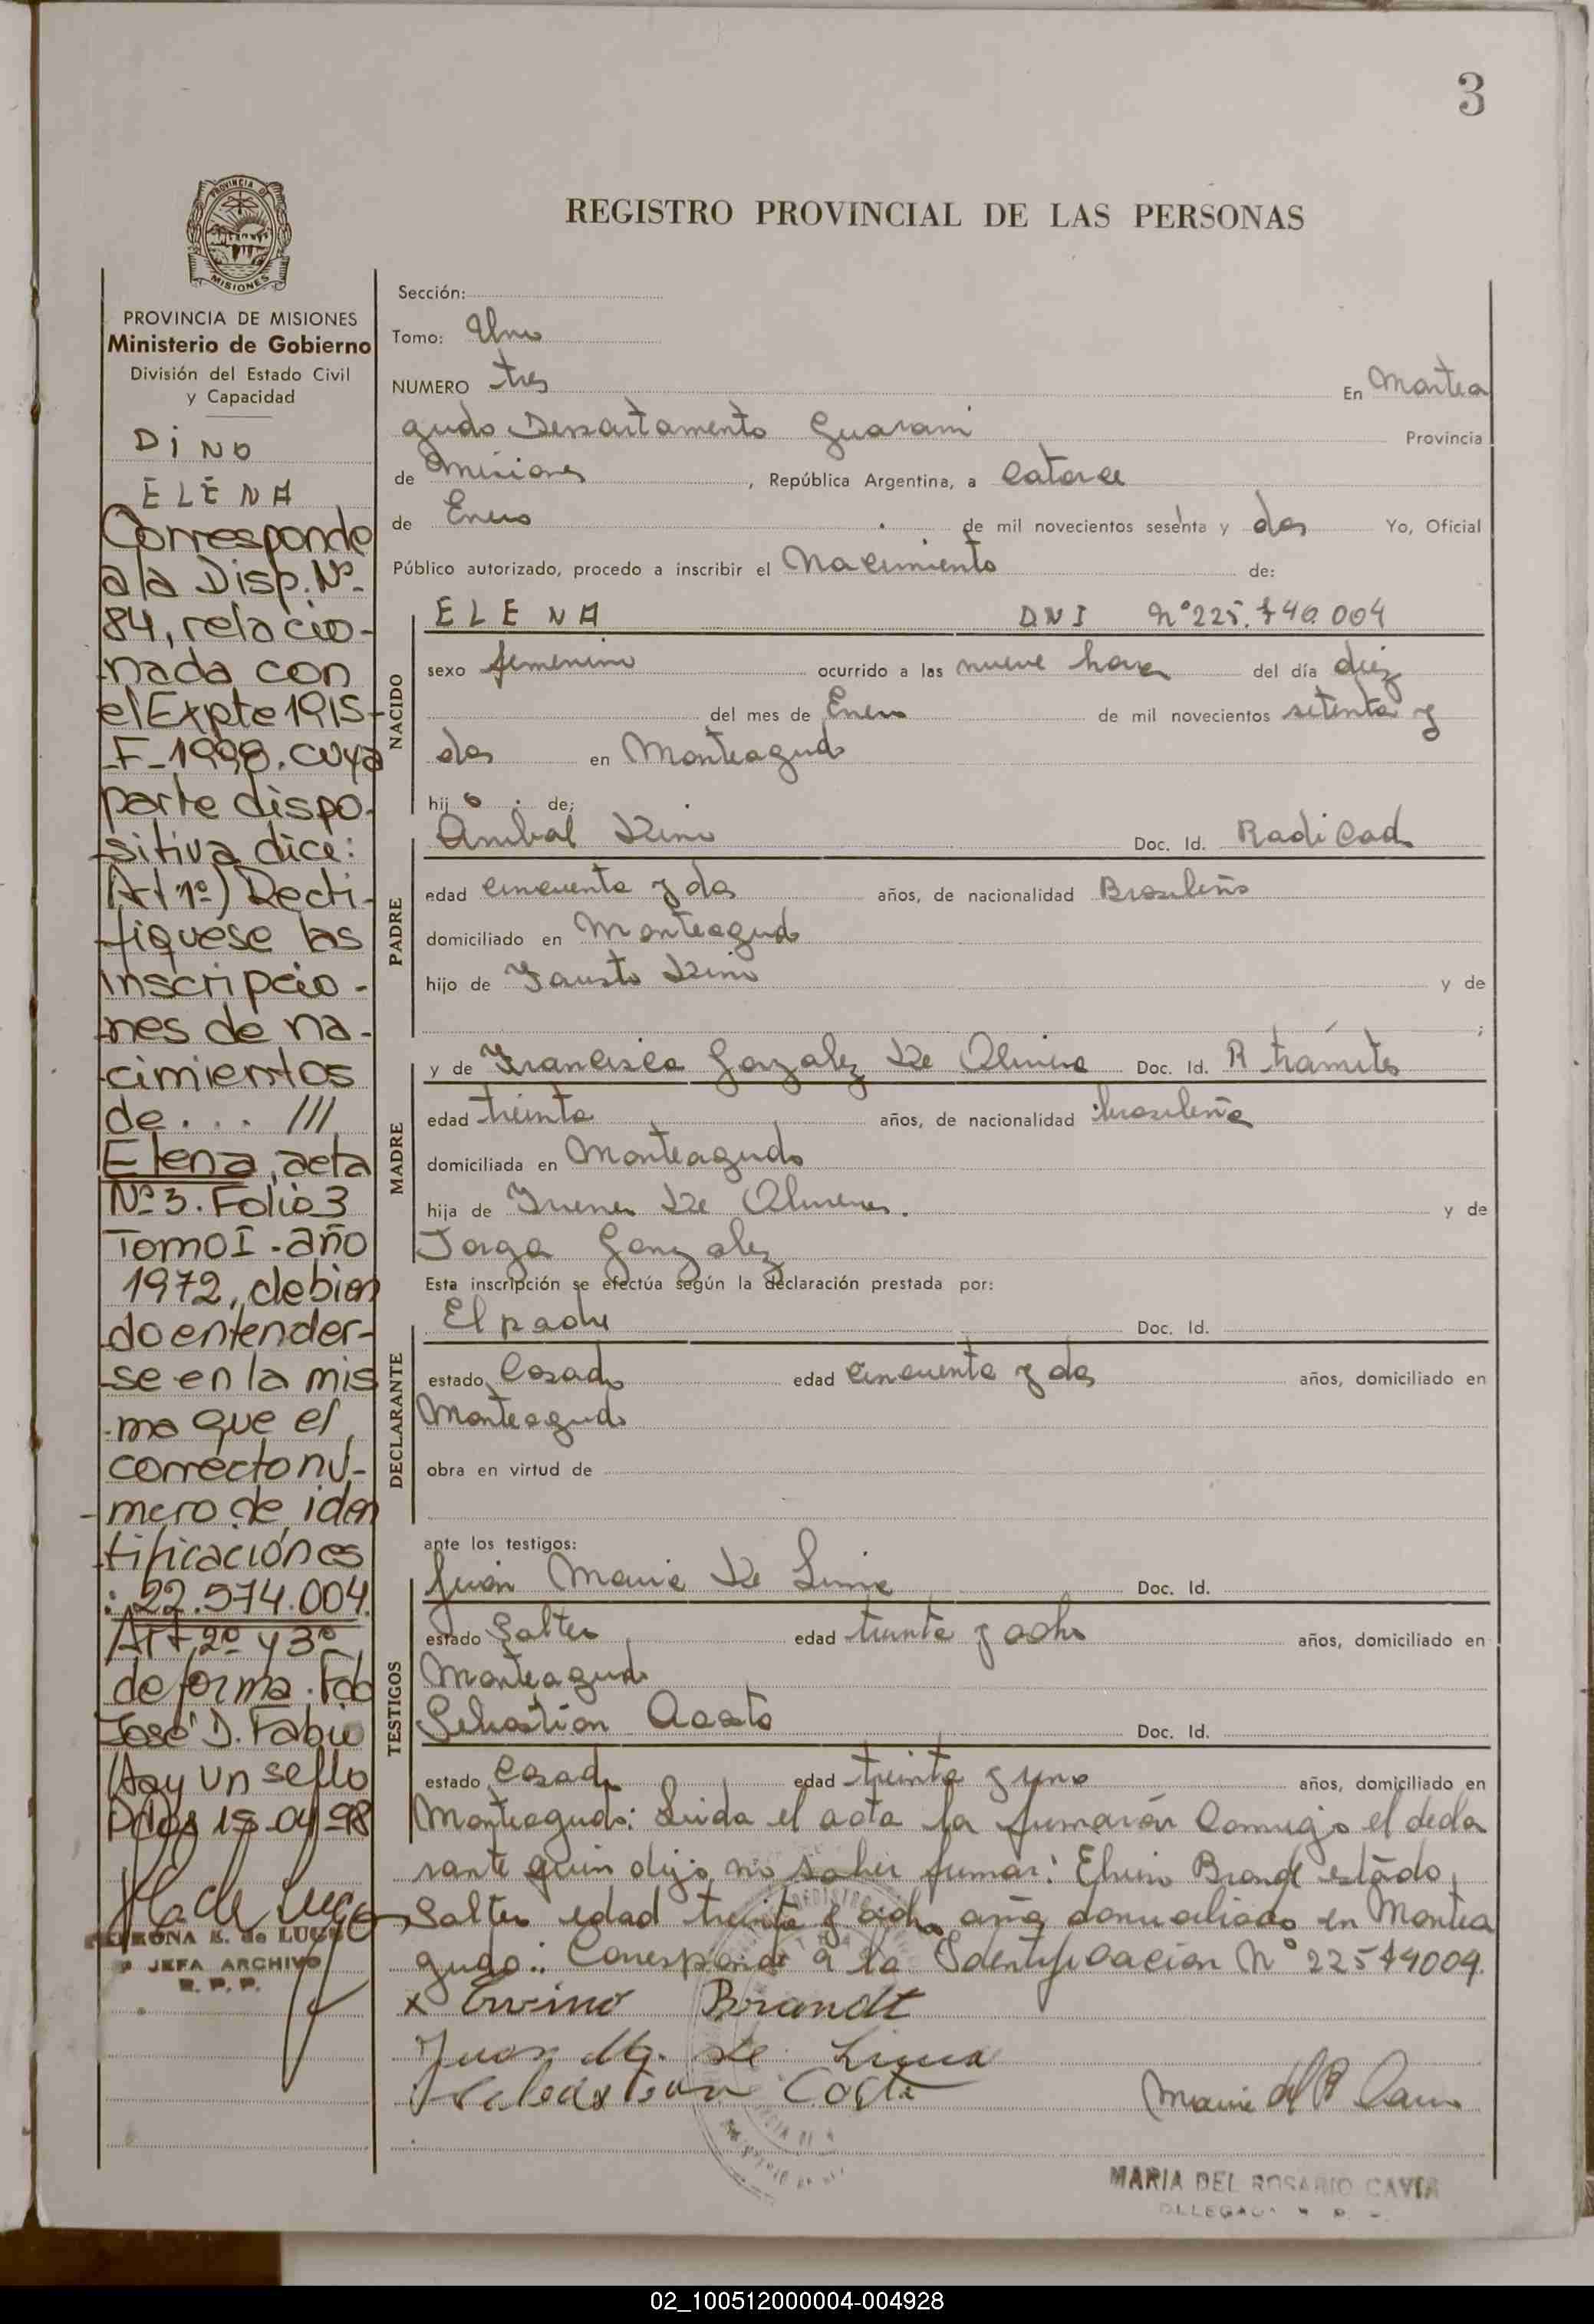 3
PROVINCIA DE MISIONES
REGISTRO PROVINCIAL DE LAS PERSONAS
PROVINCIA DE MISIONES
Ministerio de Gobierno
División del Estado Civil
y Capacidad
DINO
ELENA
Corresponde
a la Disp. Nº
84, relacio-
nada con
el Expte 1915-
F-1998. cuya
parte dispo-
sitiva dice:
Art 1º) Recti-
fiquese las
inscripcio-
nes de na-
cimientos
de . . . ///
Elena, acta
Nº 3. Folio 3
Tomo I - año
1972, debien
do entender-
se en la mis
ma que el
correcto nú-
mero de iden
tificación es
: 22.574.004.
Art 2º y 3º
de forma. Fdo
José D. Fabio
Hay un sello
Pdas 15-04-98
PETRONA E. de LUGO
JEFA ARCHIVO
R. P. P.
Sección:
Tomo: Uno
NUMERO tres En Montea
gudo Departamento Guarani Provincia
de Misiones, República Argentina, a Catorce
de Enero de mil novecientos sesenta y dos Yo, Oficial
Público autorizado, procedo a inscribir el Nacimiento de:
NACIDO
ELENA DNI Nº 225.740.004
sexo femenino ocurrido a las nueve horas del día diez
del mes de Enero de mil novecientos setenta y
dos en Monteagudo
hij o de;
PADRE
Anibal Dino Doc. Id. Radicado
edad cincuenta y dos años, de nacionalidad Brasileño
domiciliado en Monteagudo
hijo de Fausto Dino y de
;
MADRE
y de Francisca Gonzalez De Olivera Doc. Id. R tramites
edad treinta años, de nacionalidad brasileña
domiciliada en Monteagudo
hija de De y de
Jorga Gonzalez
Esta inscripción se efectúa según la declaración prestada por:
DECLARANTE
El padre Doc. Id.
estado Casado edad cincuenta y dos años, domiciliado en
Monteagudo
obra en virtud de
ante los testigos:
TESTIGOS
Juan Maria De Lima Doc. Id.
estado Solter edad treinta y ocho años, domiciliado en
Monteagudo
Sebastian Acosta Doc. Id.
estado Casado edad treinta y uno años, domiciliado en
Monteagudo: Leida el acta la firmarón Conmigo el decla
rante quien dijo no saber firmar: Brandt estado
Solter edad treinta y ocho años domiciliado en Montea
gudo: Corresponde a la Identificación Nº 22574004.
x Ervino Brandt
Juan M. De Lima
MARIA DEL ROSARIO CAVIA
02_100512000004-004928